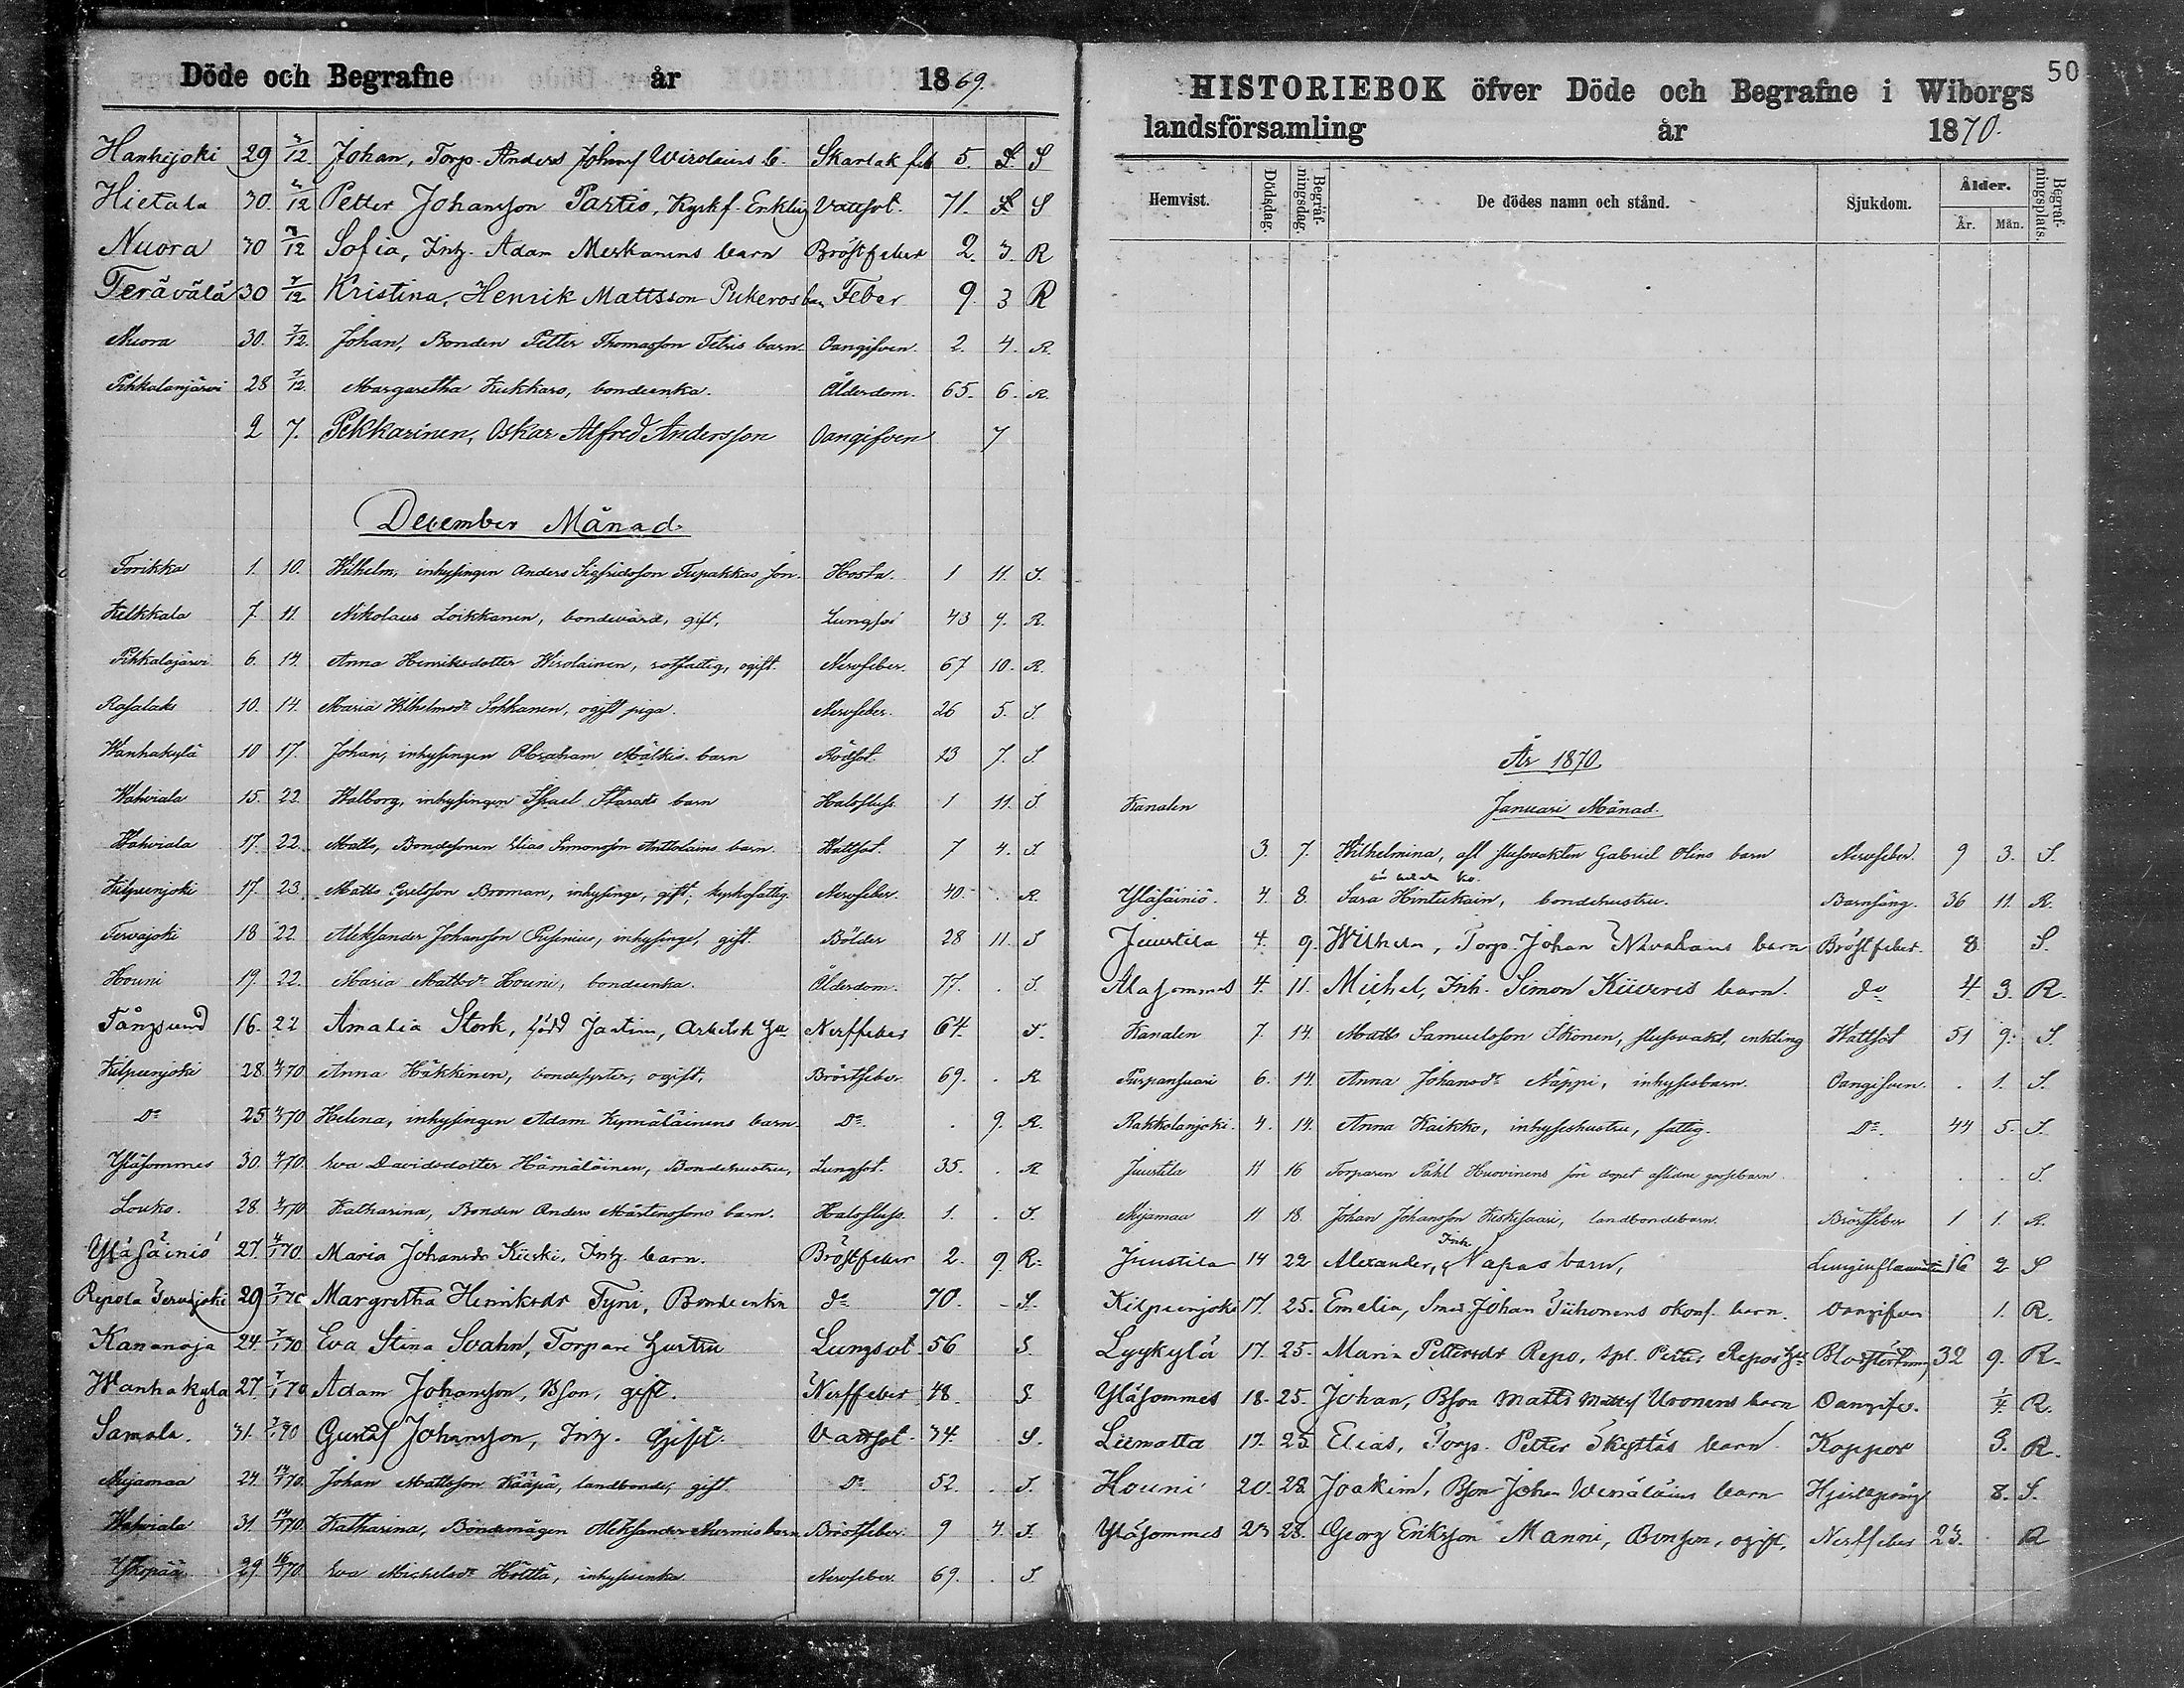 Döde och Begrafne år 1869.
Hanhijoki 29 7/12 Johan, Torp. Anders Johansf Wirolains b. Skarlak feb 5. S. S
Hietala 30. 7/12 Petter Johansson Partio, Kyrkf. Enkling Vattsot. 71. S
Nuora 30 7/12 Sofia, Inh. Adam Meskanens barn Bröstfeber 2. 3. R
Terävälä 30 7/12 Kristina, Henrik Mattsson Pukeros barn Feber 9. 3 R
Nuora 30. 7/12. Johan, Bonden Petter Thomasson Tetris barn. Oangifven. 2. 4. R.
Pihkalanjärvi 28 7/12. Margaretha Kukkaro, bondeenka. Ålderdom. 65. 6. R.
2 7. Pekkarinen, Oskar Alfred Andersson Oangifven 7
December Månad.
Torikka 1. 10. Wilhelm, inhysingen Anders Sigfridsson Tupakkas son. Hosta. 1 11. S.
Kelkkala 7. 11. Nikolaus Loikkanen, bondevärd, gift, Lungsot 43 9. R.
Pihkalajärvi 6. 14. Anna Henriksdotter Wirolainen, rotfattig, ogift. Nervfeber. 67 10. R.
Rasalaks 10. 14. Maria Wilhelmsdr Sohkanen, ogift piga. Nervfeber. 26 5. S.
Wanhakylä 10 17. Johan, inhysingen Abraham Mälkis barn Rödsot. 13 7. S.
Wahviala 15. 22. Walborg, inhysingen Israel Starasts barn Halsfluss. 1 11. S
Wahviala 17. 22. Matts, Bondesonen Elias Simonsson Anttolains barn. Wattsot. 7 4. S.
Kilpeenjoki 17. 23. Matts Broman, inhysinge, gift, kyrkofattig. Nervfeber. 40. . R.
Tervajoki 18 22. Aleksander Johansson Pusinius, inhysinge, gift. Bölder 28 11. S
Houni 19. 22. Maria Mattsdr Houni, bondeenka. Ålderdom. 77. . S
Tångsund 16. 22 Amalia Stork, född Jaatinen, Arbetsk Hu Nerffeber 64. S.
Kilpeenjoki 28. 4/1 70 Anna Häkkinen, bondesyster, ogift, Bröstfeber 69. . R.
Do 25 4/1 70 Helena, inhysingen Adam Kymäläinens barn. Do. . 9. R.
Yläsommes 30. 4/1 70. Eva Davidsdotter Hämäläinen, Bondehustru, Lungsot. 35. . R
Louko. 28. 4/1 70 Katharina, Bonden Anders Mårtenssons barn. Halsfluss. 1. . S.
Yläsäiniö 27. 4/1 70. Maria Johansdr Kiiski, Inh. barn. Bröstfeber 2. 9. R.
Repola Tervajoki 29 7/1 70 Margretha Henriksdr Tyni, Bondeenka do 70. - S.
Kananoja 24. 7/1 70 Eva Stina Svahn, Torpare hustru Lungsot 56 S.
Wanhakylä 27. 7/1 70 Adam Johansson, Bson, gift. Nerffeber 48. S.
Samola. 31. 7/1 70 Gustaf Johansson, Inh. Gift. Vattsot. 34. S.
Nijamaa 24. 14/1 70. Johan Mattsson Kääpä, landbonde, gift. Do 52. . S.
Wahviala 31. 14/1 70. Katharina, Bondemågen Aleksander Nurmis barn Bröstfeber 9 4. S.
Ykspää 29. 16/1 70. Eva Michelsdr Hölttä, inhysesenka. Nervfeber. 69. . S.
50
HISTORIEBOK öfver Döde och Begrafne i Wiborgs
landsförsamling år 1870.
Hemvist. Dödsdag. Begrafningsdag. De dödes namn och stånd. Sjukdom. Ålder. År. Mån. Begrafningsplats.
År 1870
Januari Månad.
Kanalen 3. 7. Wilhelmina, afl slussvakten Gabriel Olins barn Nervfeber. 9 3. S.
Yläsäiniö. 4. 8. Sara Hintukain, bondehustru. Barnsäng. 36 11. R.
Juustila 4. 9. Wilhelm, Torp. Johan Nivalains barn Bröstfeber. 8 S.
Alasommes 4. 11. Michel, Inh. Simon Kiiveris barn. do 4 3. R.
Kanalen 7. 14. Matts Samuelsson Ikonen, slussvakt, enkling Wattsot 51 9. S.
Purpansaari 6. 14. Anna Johansdr Näppi, inhysesbarn. Oangifven. . 1. S.
Rakkolanjoki. 4. 14. Anna Kaikko, inhyseshustru, fattig. Do. 44 5. S.
Juustila 11 16 Torparen Påhl Huovinens före dopet aflidne gossebarn . . . S.
Nijamaa 11 18. Johan Johansson Keskisaari, landbondebarn. Bröstfeber 1 1. R.
Juustila 14 22 Alexander, Inh Napas barn, Lunginflammation 16 2 S
Kilpeenjoki 17. 25. Emelia, Smed Johan Tiihonens okonf. barn. Oangifven 1. R.
Lyykylä 17. 25. Maria Pettersdr Repo, spl. Petter Repos Hu. Blodstörtning 32 9. R.
Yläsommes 18. 25. Johan, Bson Matts Mattsf Uronens barn Oangifv. 1/4. R.
Liimatta 17. 25 Elias, Torp. Petter Skyttäs barn Koppor 3. R.
Houni 20. 28. Joakim, Bson Johan Venäläins barn Hjertsprång 8. S.
Yläsommes 23 28. Georg Eriksson Manni, Bonson, ogift, Nerffeber 23. R